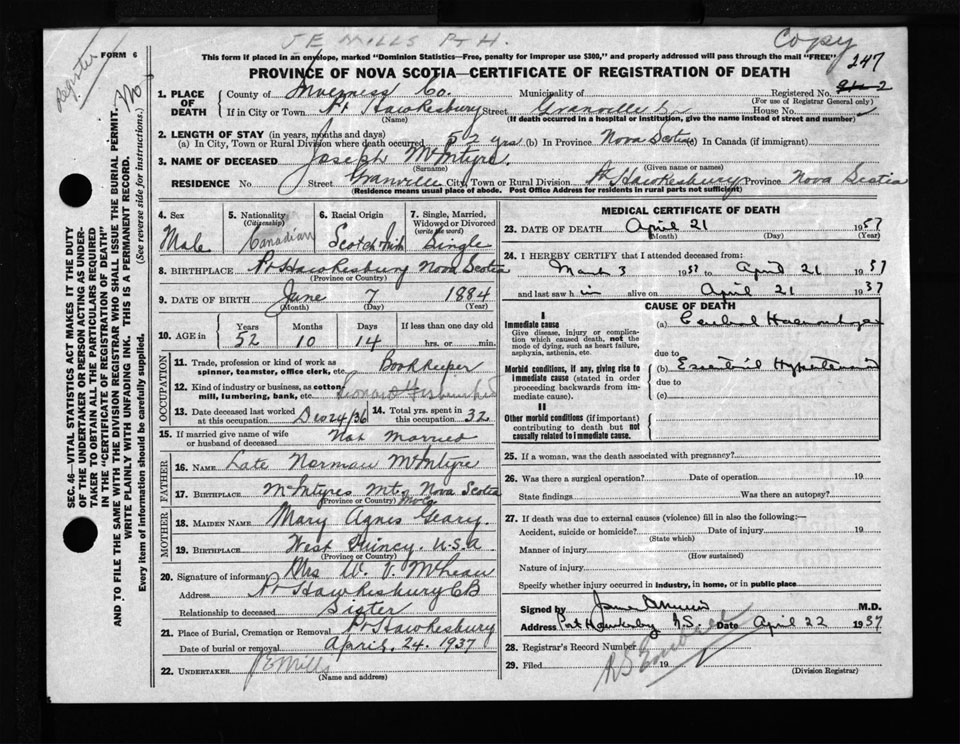 J E MILLS Pt H.
Copy
Register
FORM 6
This form if placed in an envelope, marked "Dominion Statistics—Free, penalty for improper use $300," and properly addressed will pass through the mail "FREE"
247
PROVINCE OF NOVA SCOTIA—CERTIFICATE OF REGISTRATION OF DEATH
SEC. 46—VITAL STATISTICS ACT MAKES IT THE DUTY
OF THE UNDERTAKER OR PERSON ACTING AS UNDER-
TAKER TO OBTAIN ALL THE PARTICULARS REQUIRED
IN THE "CERTIFICATE OF REGISTRATION OF DEATH"
AND TO FILE THE SAME WITH THE DIVISION REGISTRAR WHO SHALL ISSUE THE BURIAL PERMIT.
WRITE PLAINLY WITH UNFADING INK. THIS IS A PERMANENT RECORD.
Every item of information should be carefully supplied. (See reverse side for instructions.)
1. PLACE OF DEATH County of Inverness Co. Municipality of Registered No.
(For use of Registrar General only)
If in City or Town Pt Hawkesbury Street Granville St House No.
(Name) (If death occurred in a hospital or institution, give the name instead of street and number)
2. LENGTH OF STAY (in years, months and days)
(a) In City, Town or Rural Division where death occurred 52 yrs (b) In Province Nova Scotia (c) In Canada (if immigrant)
3. NAME OF DECEASED Joseph McIntyre
(Surname) (Given name or names)
RESIDENCE No Street Granville City, Town or Rural Division Pt Hawkesbury Province Nova Scotia
(Residence means usual place of abode. Post Office Address for residents in rural parts not sufficient)
4. Sex 5. Nationality (Citizenship) 6. Racial Origin 7. Single, Married, Widowed or Divorced (write the word)
Male Canadian Scotch Irish Single
8. BIRTHPLACE Pt Hawkesbury Nova Scotia
(Province or Country)
9. DATE OF BIRTH June 7 1884
(Month) (Day) (Year)
10. AGE in Years Months Days If less than one day old
52 10 14 hrs. or min.
OCCUPATION
11. Trade, profession or kind of work as spinner, teamster, office clerk, etc. Bookkeeper
12. Kind of industry or business, as cotton mill, lumbering, bank, etc. Leonard Fisheries Ltd
13. Date deceased last worked at this occupation Dec 24/36 14. Total yrs. spent in this occupation 32
15. If married give name of wife or husband of deceased Not Married
FATHER
16. NAME Late Norman McIntyre
17. BIRTHPLACE McIntyres Mt. Nova Scotia
(Province or Country)
MOTHER
18. MAIDEN NAME Mary Agnes Geary.
19. BIRTHPLACE West Quincy. U.S.A
(Province or Country)
20. Signature of informant Mrs W. J. McLean
Address Pt Hawkesbury CB
Relationship to deceased Sister
21. Place of Burial, Cremation or Removal Pt Hawkesbury
Date of burial or removal April 24. 1937
22. UNDERTAKER J E Mills
(Name and address)
MEDICAL CERTIFICATE OF DEATH
23. DATE OF DEATH April 21 1937
(Month) (Day) (Year)
24. I HEREBY CERTIFY that I attended deceased from:
March 3 1937 to April 21 1937
and last saw him alive on April 21 1937
CAUSE OF DEATH
I
Immediate cause (a) Cerebral Haemorrhage
Give disease, injury or complication which caused death, not the mode of dying, such as heart failure, asphyxia, asthenia, etc. due to
Morbid conditions, if any, giving rise to immediate cause (stated in order proceeding backwards from immediate cause). (b) Essential Hypertension
due to
(c)
II
Other morbid conditions (if important) contributing to death but not causally related to immediate cause.
25. If a woman, was the death associated with pregnancy?
26. Was there a surgical operation? Date of operation 19
State findings Was there an autopsy?
27. If death was due to external causes (violence) fill in also the following:—
Accident, suicide or homicide? Date of injury 19
(State which)
Manner of injury
(How sustained)
Nature of injury
Specify whether injury occurred in industry, in home, or in public place
Signed by M.D.
Address Port Hawkesbury N.S. Date April 22 1937
28. Registrar's Record Number
29. Filed 19
(Division Registrar)